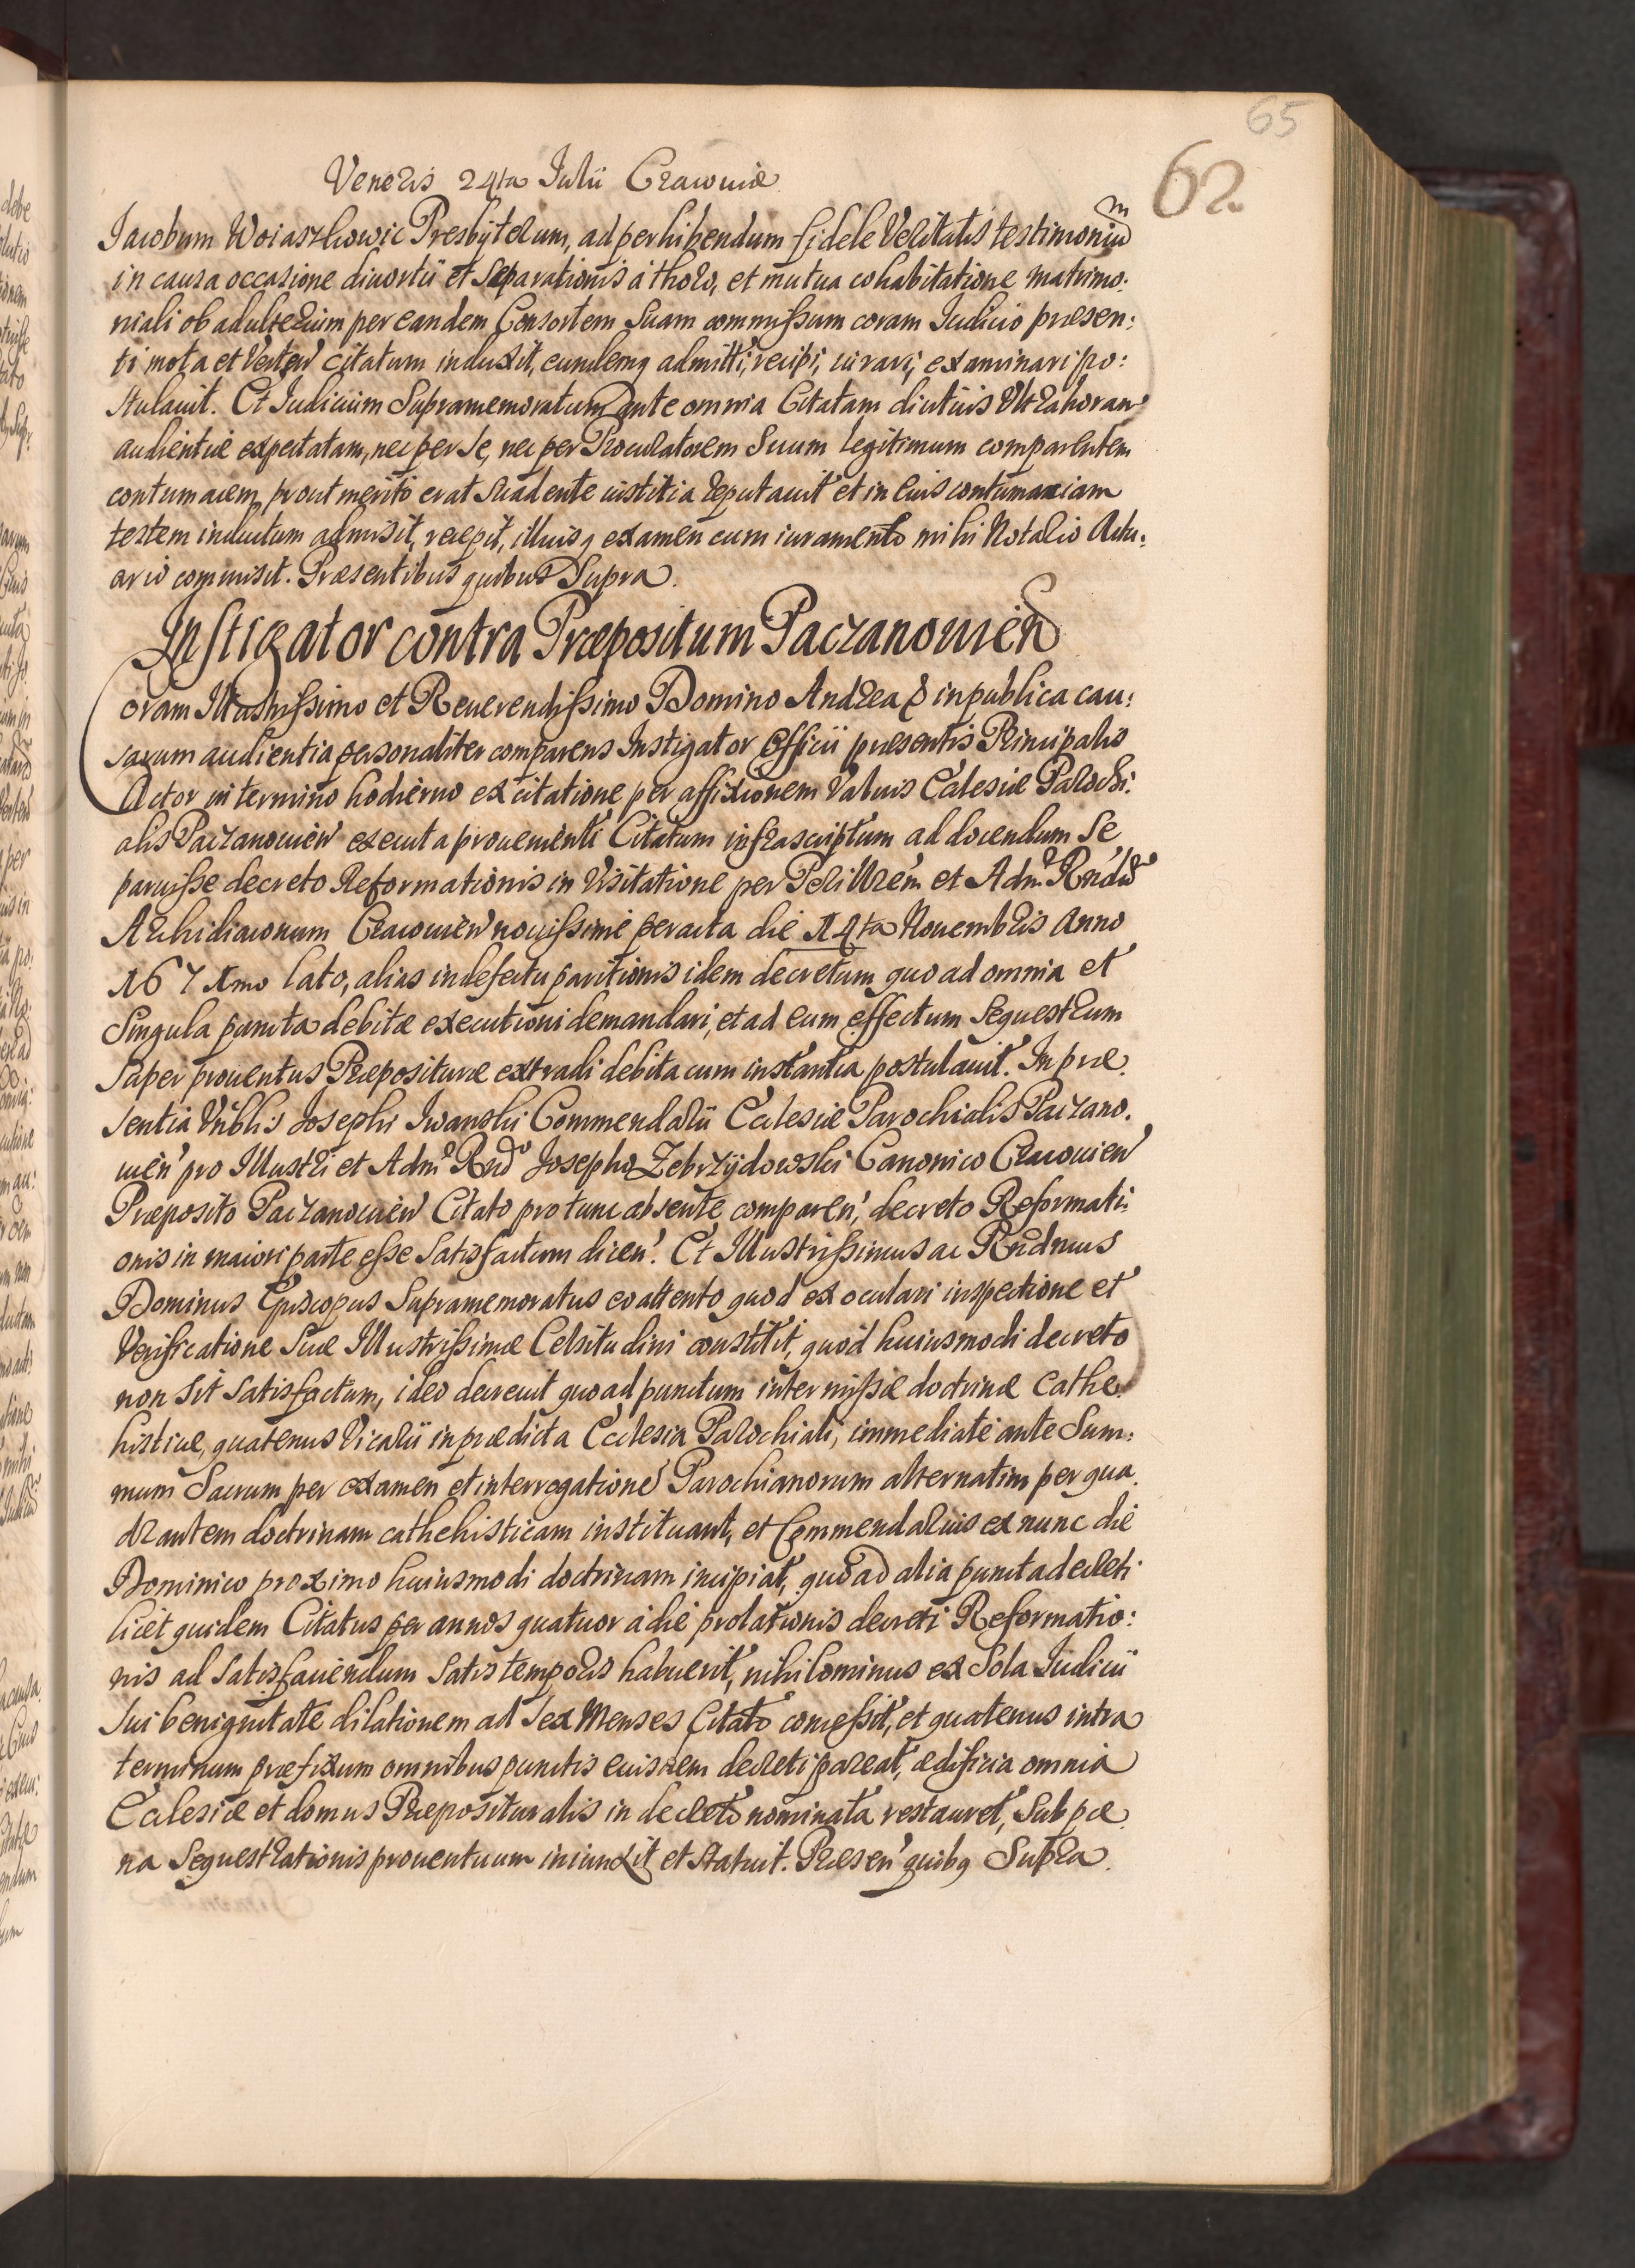 65
62
Veneris 24ta Julii Cracoviæ
Jacobum Woiaszkowic Presbyterum, ad perhibendum fidele Veritatis testimoniu m
in causa occasione divortii et separationis à thoro, et mutua cohabitatione matrimo:
niali ob adulterium per eandem Consortem Suam commissum coram Judicio præsen:
ti mota et Verten' citatum induxit, eundemq admitti, recipi, iurari, examinari po:
stulavit. Et Judicium Supramemoratum ante omnia Citatam diutius Ultra horam
audientiæ expectatam, nec per se, nec per Procuratorem Suum legitimum comparentem
contumacem, prout meritò erat Suadente iustitia reputavit et in eius contumaciam
testem inductum admisit, recepit, illiusq examen cum iuramento mihi Notario Actu:
ario commisit. Præsentibus quibus Supra.
Instigator contra Præpositum Paczanovien
Coram Illustrissimo et Reverendissimo Domino Andrea & in publica cau:
sarum audientia personaliter comparens Instigator Officii præsentis Principalis
Actor in termino hodierno ex citatione per affixionem Valvis Ecclesiæ Parochi:
alis Paczanovien' executa provenienti Citatum infrascriptum ad docendum Se
paruisse decreto Reformationis in Visitatione per PerIllrem et Adm R̃ndu
Archidiaconum Cracovien' novissimè peracta die 14ta Novembris Anno
1671mo lato, alias in defectu paritionis idem decretum quo ad omnia et
Singula puncta debitæ executioni demandari, et ad eum effectum Sequestrum
Super proventus Præposituræ extradi debita cum instantia postulavit. In præ:
sentia Vnblis Josephi Iwanski Commendarii Ecclesiæ Parochialis Paczano:
vien' pro Illustri et Adm Rndo Josepho Zebrzydowski Canonico Cracovien'
Præposito Paczanovien' Citato pro tunc absente, comparen', decreto Reformati:
onis in maiori parte esse Satisfactum dicen'. Et Illustrissimus ac Rñdmus
Dominus Episcopus Supramemoratus eo attento quod ex oculari inspectione et
Verificatione Suæ Illustrissimæ Celsitudini constitit, quòd huiusmodi decreto
non sit satisfactum, ideo decrevit quo ad punctum intermissæ doctrinæ Cathe:
histicæ, quatenus Vicarii in prædicta Ecclesia Parochiali, immediatè ante Sum:
mum Sacrum per examen et interrogatione' Parochianorum alternatim per qua:
drantem doctrinam cathehisticam instituant, et Commendarius ex nunc die
Dominico proximo huiusmodi doctrinam incipiat, quò ad alia puncta decreti
licet quidem Citatus per annos quatuor à die prolationis decreti Reformatio:
nis ad Satisfaciendum Satis temporis habuerit, nihilominus ex Sola Judicii
Sui benignitate dilationem ad Sex Menses Citato concessit, et quatenus intra
terminum præfixum omnibus punctis eiusdem decreti pareat, ædificia omnia
Ecclesiæ et domus Præposituralis in decreto nominata restauret, Sub pæ:
na Sequestrationis proventuum iniunxit et statuit. Præsen' quibq Supra.